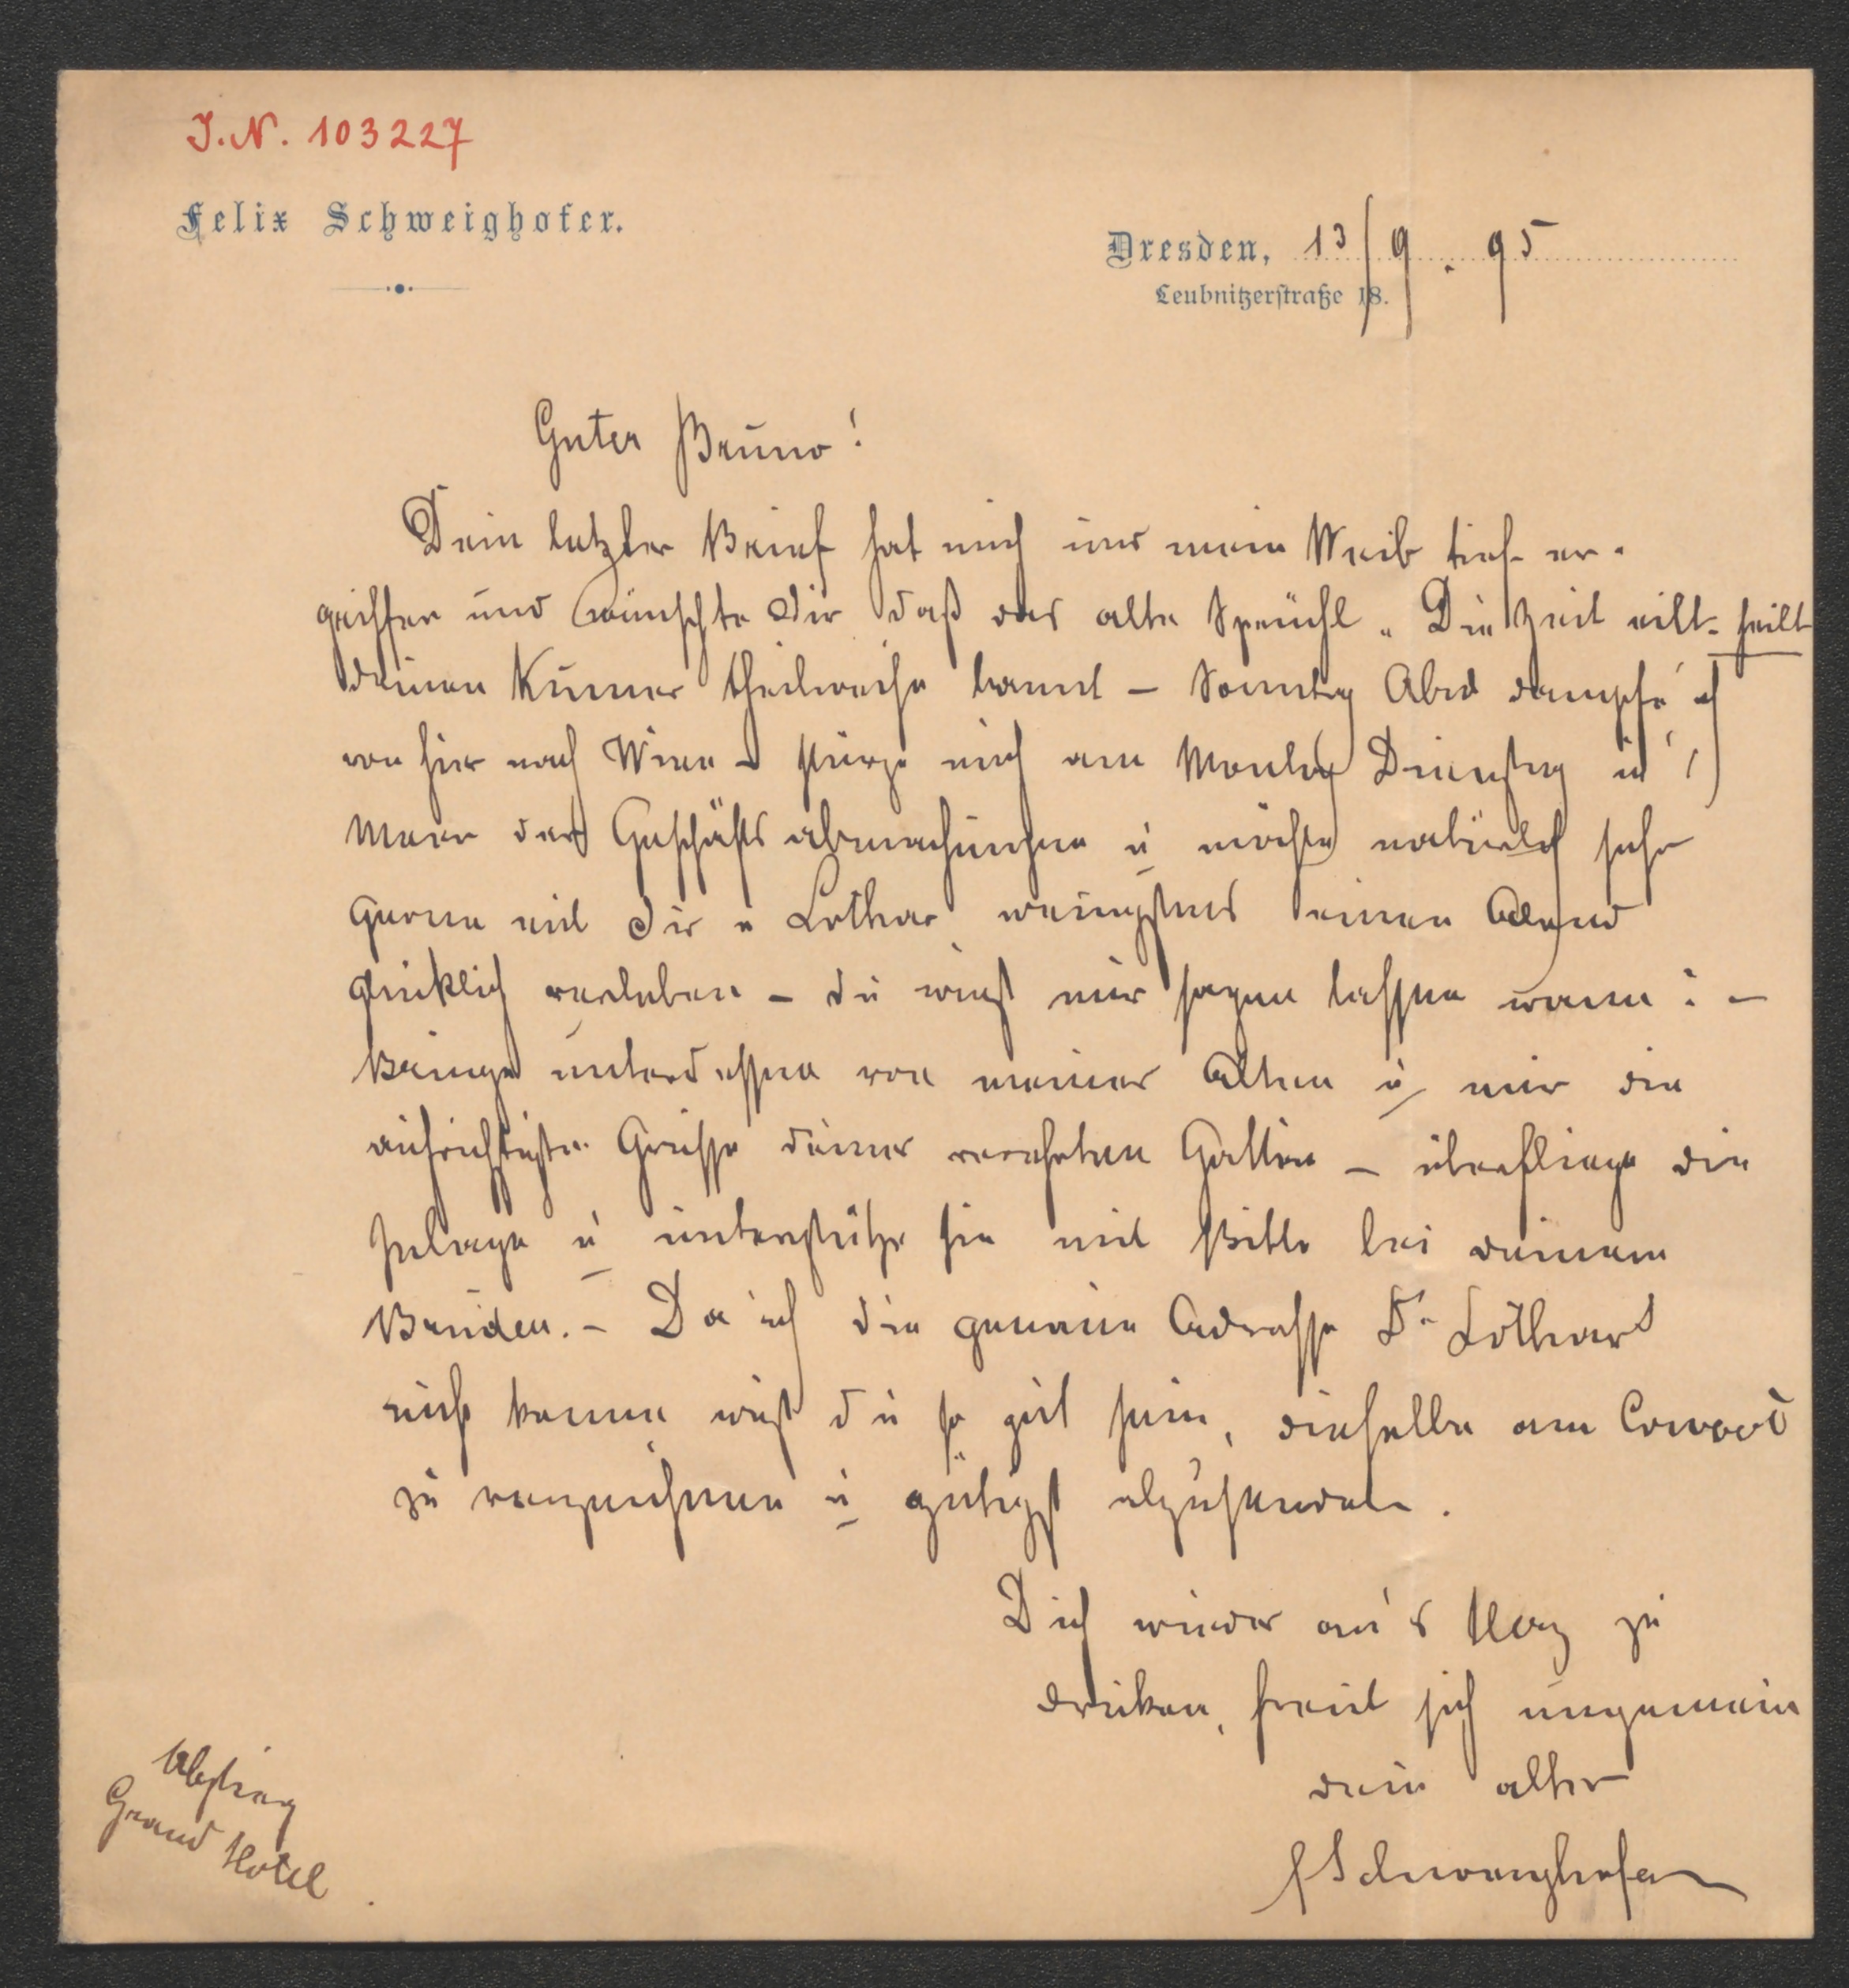 J. N. 103227
Felix Schweighofer.
Dresden, 13/9. 95
Leubnitzerstraße 18.
Guter Bruno!
Dein letzter Brief hat mich und mein Weib tief er-
griffen und wünschte Dir daß das alte Sprüchl „Die Zeit eilt - heilt
deinen Kummer theilweise bannt – Sonntag Abd dampfe ich
von hier nach Wien – stürze mich am Montag Dienstag in's
Meer der Geschäftsabmachungen u möchte natürlich sehr
gerne mit Dir u Lothar wenigstens einen Abend
glücklich verleben – Du wirst mir sagen lassen wann? –
Bringe unterdessen von meiner Alten u mir die
aufrichtigste Grüsse deiner verehrten Gattin – überfliege die
Inlage u unterstütze sie mit Bitte bei deinem
Bruder. – Da ich die genaue Adresse Dr Lothars
nicht kenne wirst Du so gut sein, dieselbe am Couvert
zu verzeichnen u gütigst abzusenden.
Dich wieder an's Herz zu
drücken, freut sich ungemein
dein alter
FSchweighofer
Abstieg
Grand Hotel.